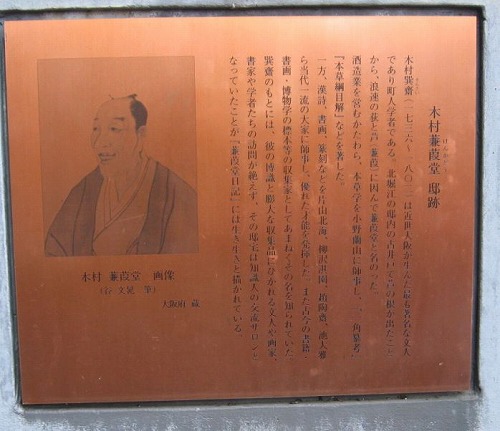 木村蒹葭堂 邸跡
木村巽斎(一七三六~一八〇二)は近世大阪が生んだ最も著名な文人
であり町人学者である。北堀江の邸内の古井戸から芦の根が出たこと
から、浪速の荻と芦(蒹葭)に因んで蒹葭堂と名のった。
酒造業を営むかたわら、本草学を小野蘭山に師事し、「一角纂考」
「本草綱目解」などを著した。
一方、漢詩、書画、篆刻などを片山北海、柳沢淇園、趙陶斎、池大雅
ら当代一流の大家に師事し、優れた才能を発揮した。また古今の書籍・
書画・博物学の標本等の収集家としてあまねくその名を知られていた。
巽斎のもとには、彼の博識と膨大な収集品にひかれる文人や画家、
書家や学者たちの訪問が絶えず、その邸宅は知識人の交流サロンと
なっていたことが「蒹葭堂日記」には生き生きと描かれている。
木村 蒹葭堂 画像
(谷 文晁 筆)
大阪府 蔵